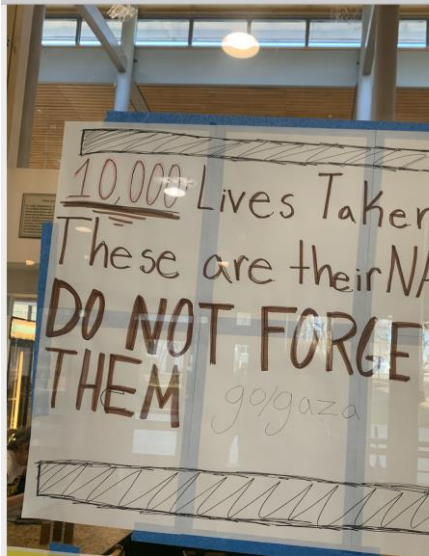 10,000 Lives Taken
These are their NA
DO NOT FORGE
THEM go/gaza